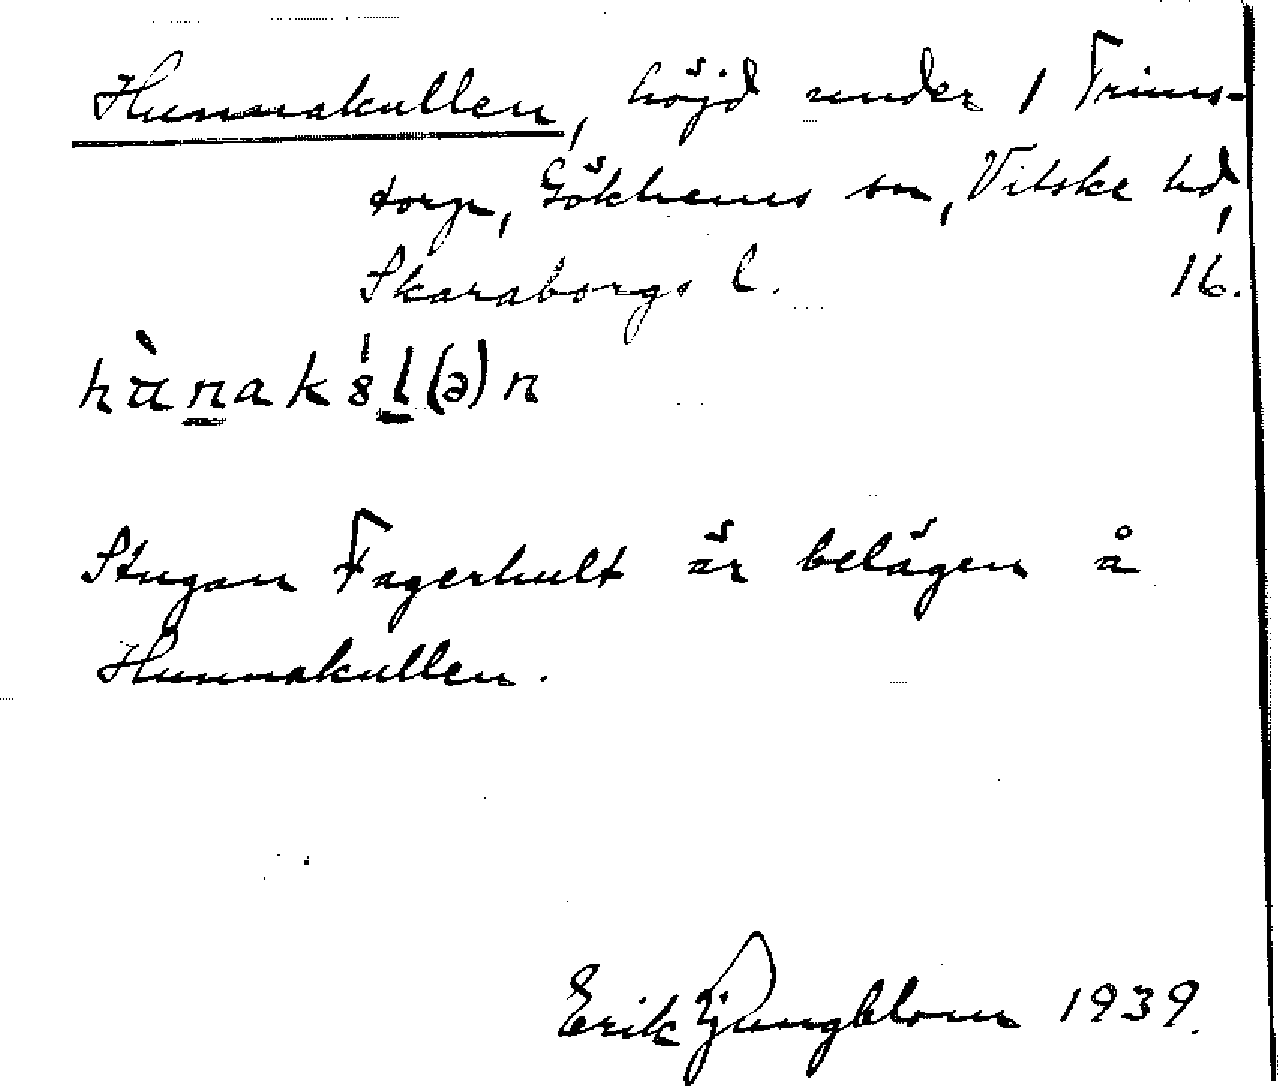 Hunnakullen, höjd under 1 Trims-
torp, Gökhems sn, Vilske hd,
Skaraborgs l. 16.
hùnak8́l(ə)n
Stugan Fagerhult är belägen å
Hunnakullen.
Erik Ljungblom 1939.